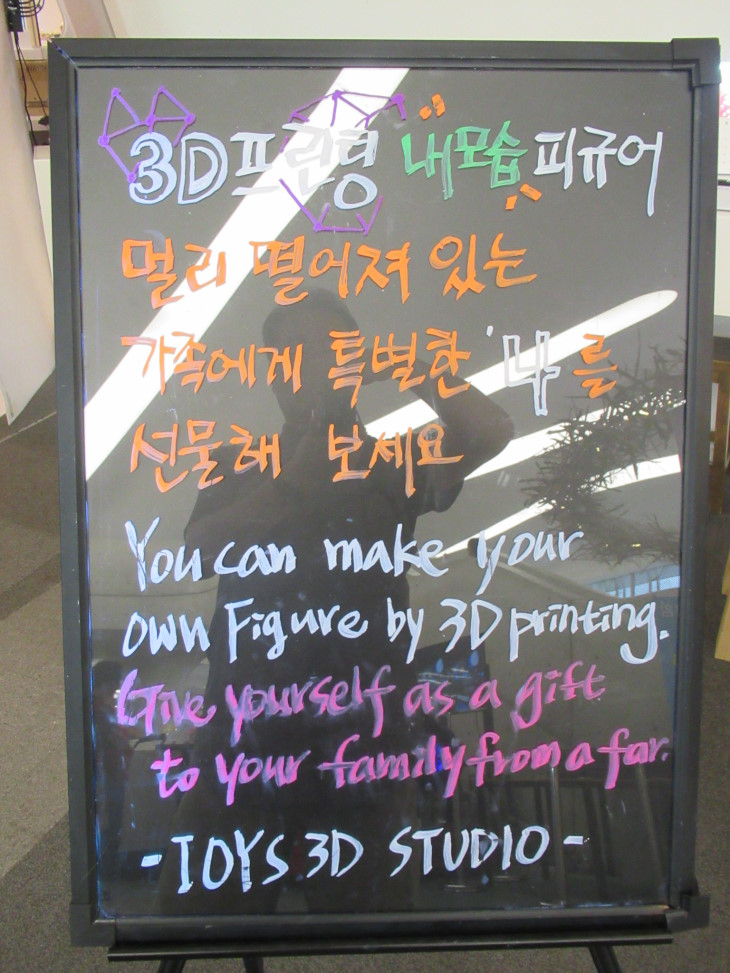 3D프린팅 내모습 피규어
멀리 떨어져 있는
가족에게 특별한 '나'를
선물해 보세요
You can make your
own Figure by 3D printing.
Give yourself as a gift
to your family from a far.
- IOYS 3D STUDIO -